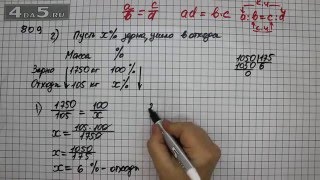 4a5.ru
a/b = c/d   ad = b·c   a:b = c:d
809 2) Пусть x% зерна, ушло в отходы
Масса %
Зерно 1750 кг 100%
Отходы 105 кг x%
1) 1750/105 = 100/x
x = 105·100/1750
x = 1050/175
x = 6 % - отходы
1050 175
1050 6
0